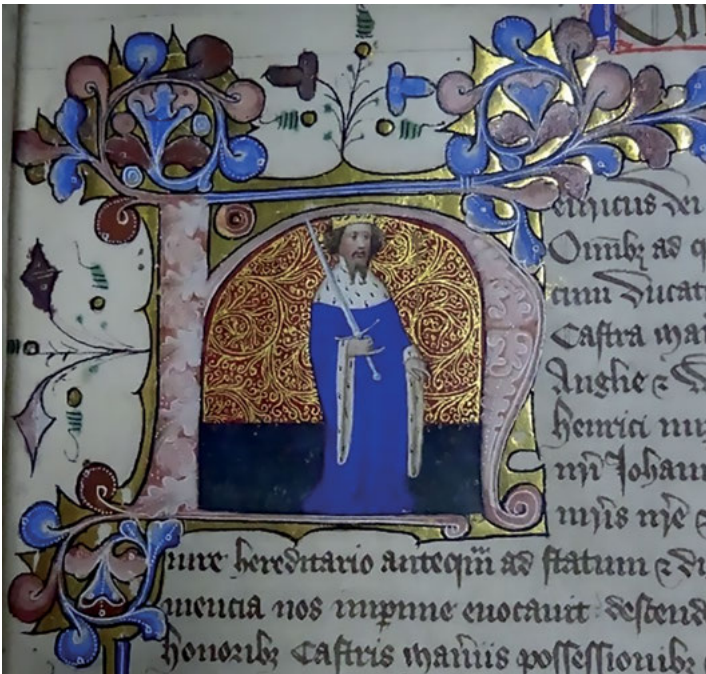 Henricus dei
Omibȝ ad
cum ducat
Castra
Anglie ⁊
henrici
nr̄i Johann
mr̄is nr̄e
iure hereditario anteqm̄ ad statum ⁊
mencia nos euocauit descend
honoribȝ Castris man̄iis possessionibȝ